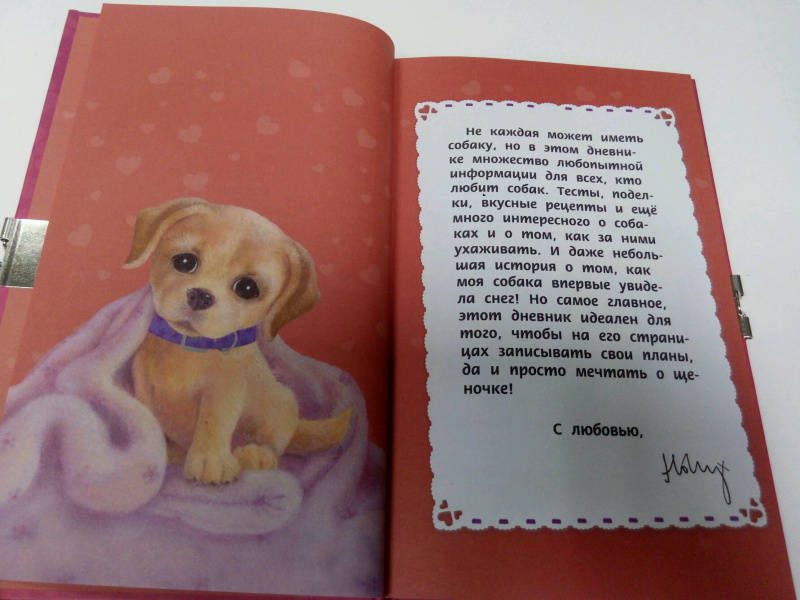 Не каждая может иметь
собаку, но в этом дневни-
ке множество любопытной
информации для всех, кто
любит собак. Тесты, подел-
ки, вкусные рецепты и ещё
много интересного о соба-
ках и о том, как за ними
ухаживать. И даже неболь-
шая история о том, как
моя собака впервые увиде-
ла снег! Но самое главное,
этот дневник идеален для
того, чтобы на его страни-
цах записывать свои планы,
да и просто мечтать о ще-
ночке!
С любовью,